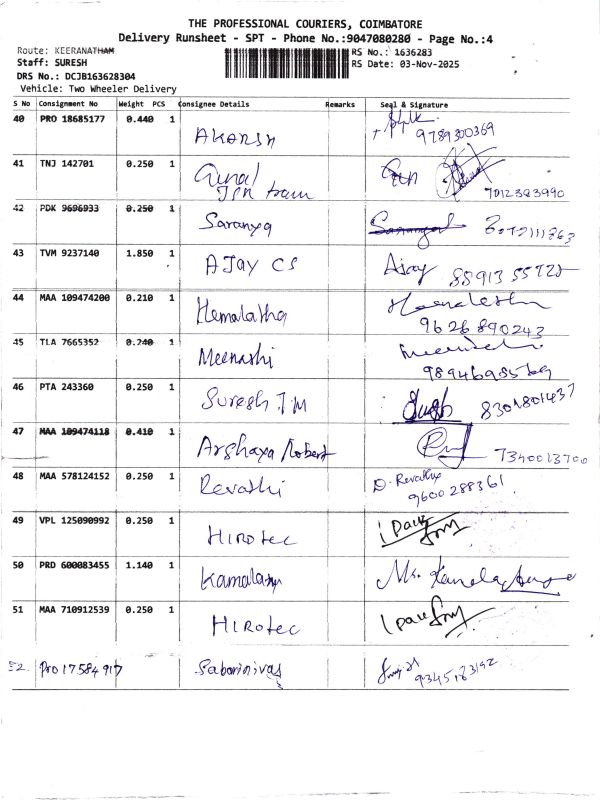 THE PROFESSIONAL COURIERS, COIMBATORE
Delivery Runsheet - SPT - Phone No.:9047080280 - Page No.:4
Route: KEERANATHAM
RS No.: 1636283
Staff: SURESH
RS Date: 03-Nov-2025
DRS No.: DCJB163628304
Vehicle: Two Wheeler Delivery
S No Consignment No Weight PCS Consignee Details Remarks Seal & Signature
40 PRO 18685177 0.440 1 AKARSH 9789300369
41 TNJ 142701 0.250 1 7012383990
42 PDK 9696933 0.250 1 Saranya
43 TVM 9237140 1.850 1 AJAY CS Ajay
44 MAA 109474200 0.210 1 Hemalatha 9626890243
45 TLA 7665352 0.240 1 Meenashi
46 PTA 243360 0.250 1 Suresh T.M 8301801437
47 MAA 109474118 0.410 1 Arshaya Robert
48 MAA 578124152 0.250 1 Revathi D. Revathy
9600288361
49 VPL 125090992 0.250 1 HIROTEC
50 PRD 600083455 1.140 1
51 MAA 710912539 0.250 1 HIROTEC
52. Pro 17584917 Sabarinivas 9345183192